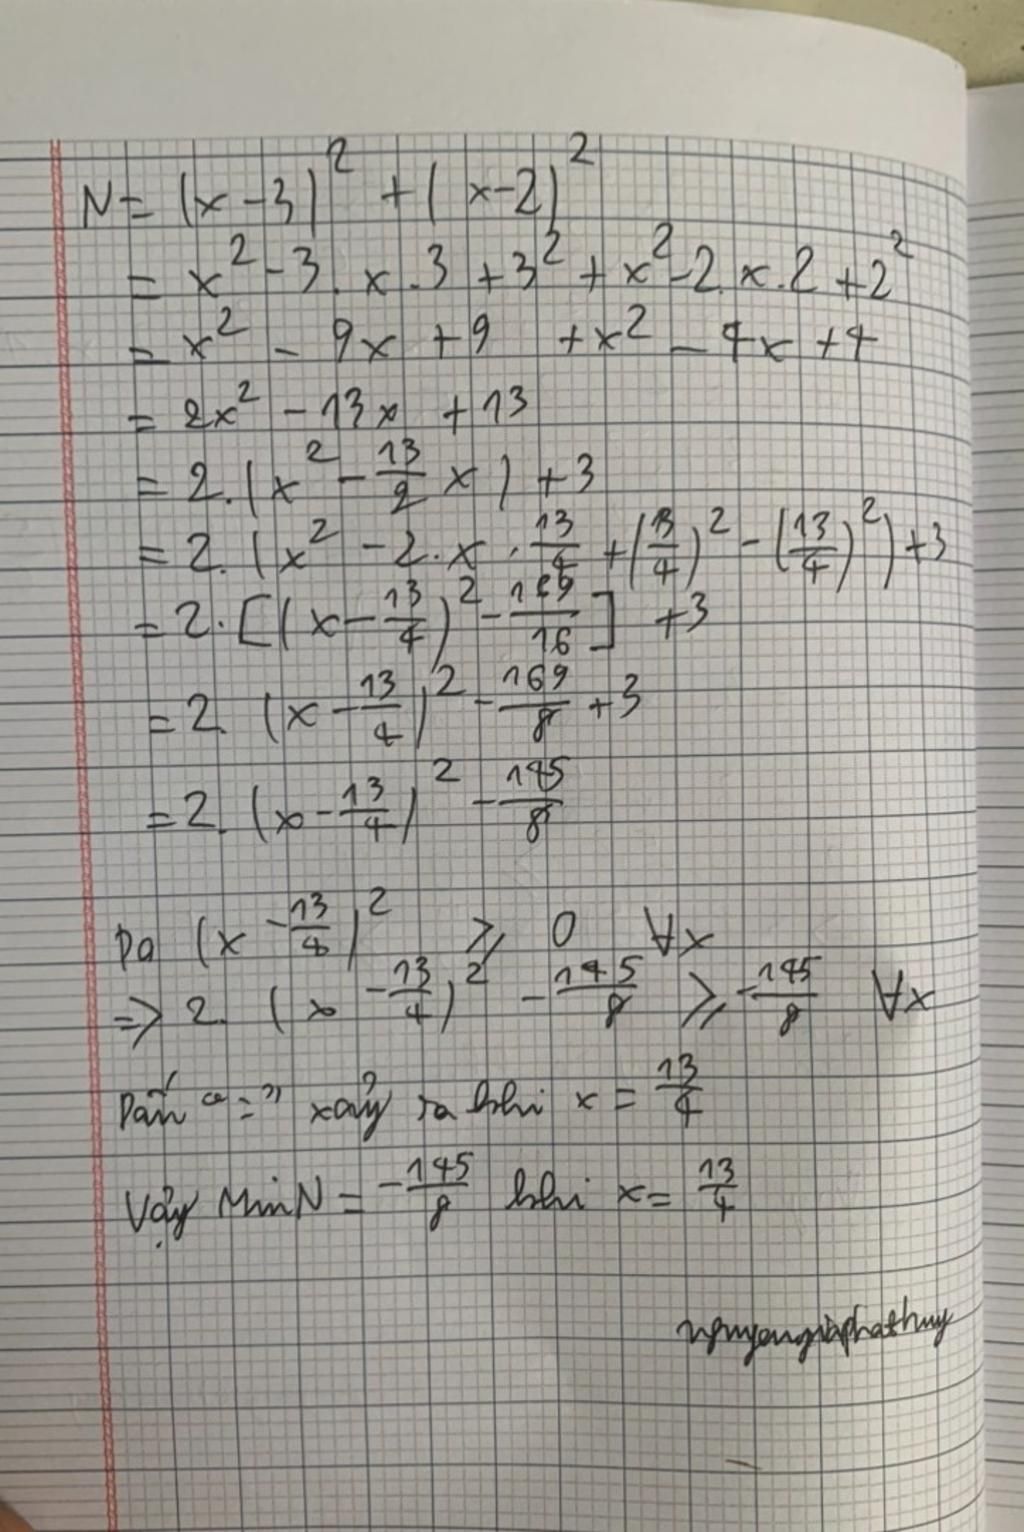 N = (x - 3)² + (x - 2)²
= x² - 3 . x . 3 + 3² + x² - 2 . x . 2 + 2²
= x² - 9x + 9 + x² - 4x + 4
= 2x² - 13x + 13
= 2 . (x² - 13/2 x) + 3
= 2 . (x² - 2 . x . 13/4 + (13/4)² - (13/4)²) + 3
= 2 . [(x - 13/4)² - 169/16] + 3
= 2 . (x - 13/4)² - 169/8 + 3
= 2 . (x - 13/4)² - 145/8
Da (x - 13/4)² ⩾ 0 ∀x
=> 2 . (x - 13/4)² - 145/8 ⩾ -145/8 ∀x
Dấu "=" xảy ra khi x = 13/4
Vậy Min N = -145/8 khi x = 13/4
nguyengiaphathuy